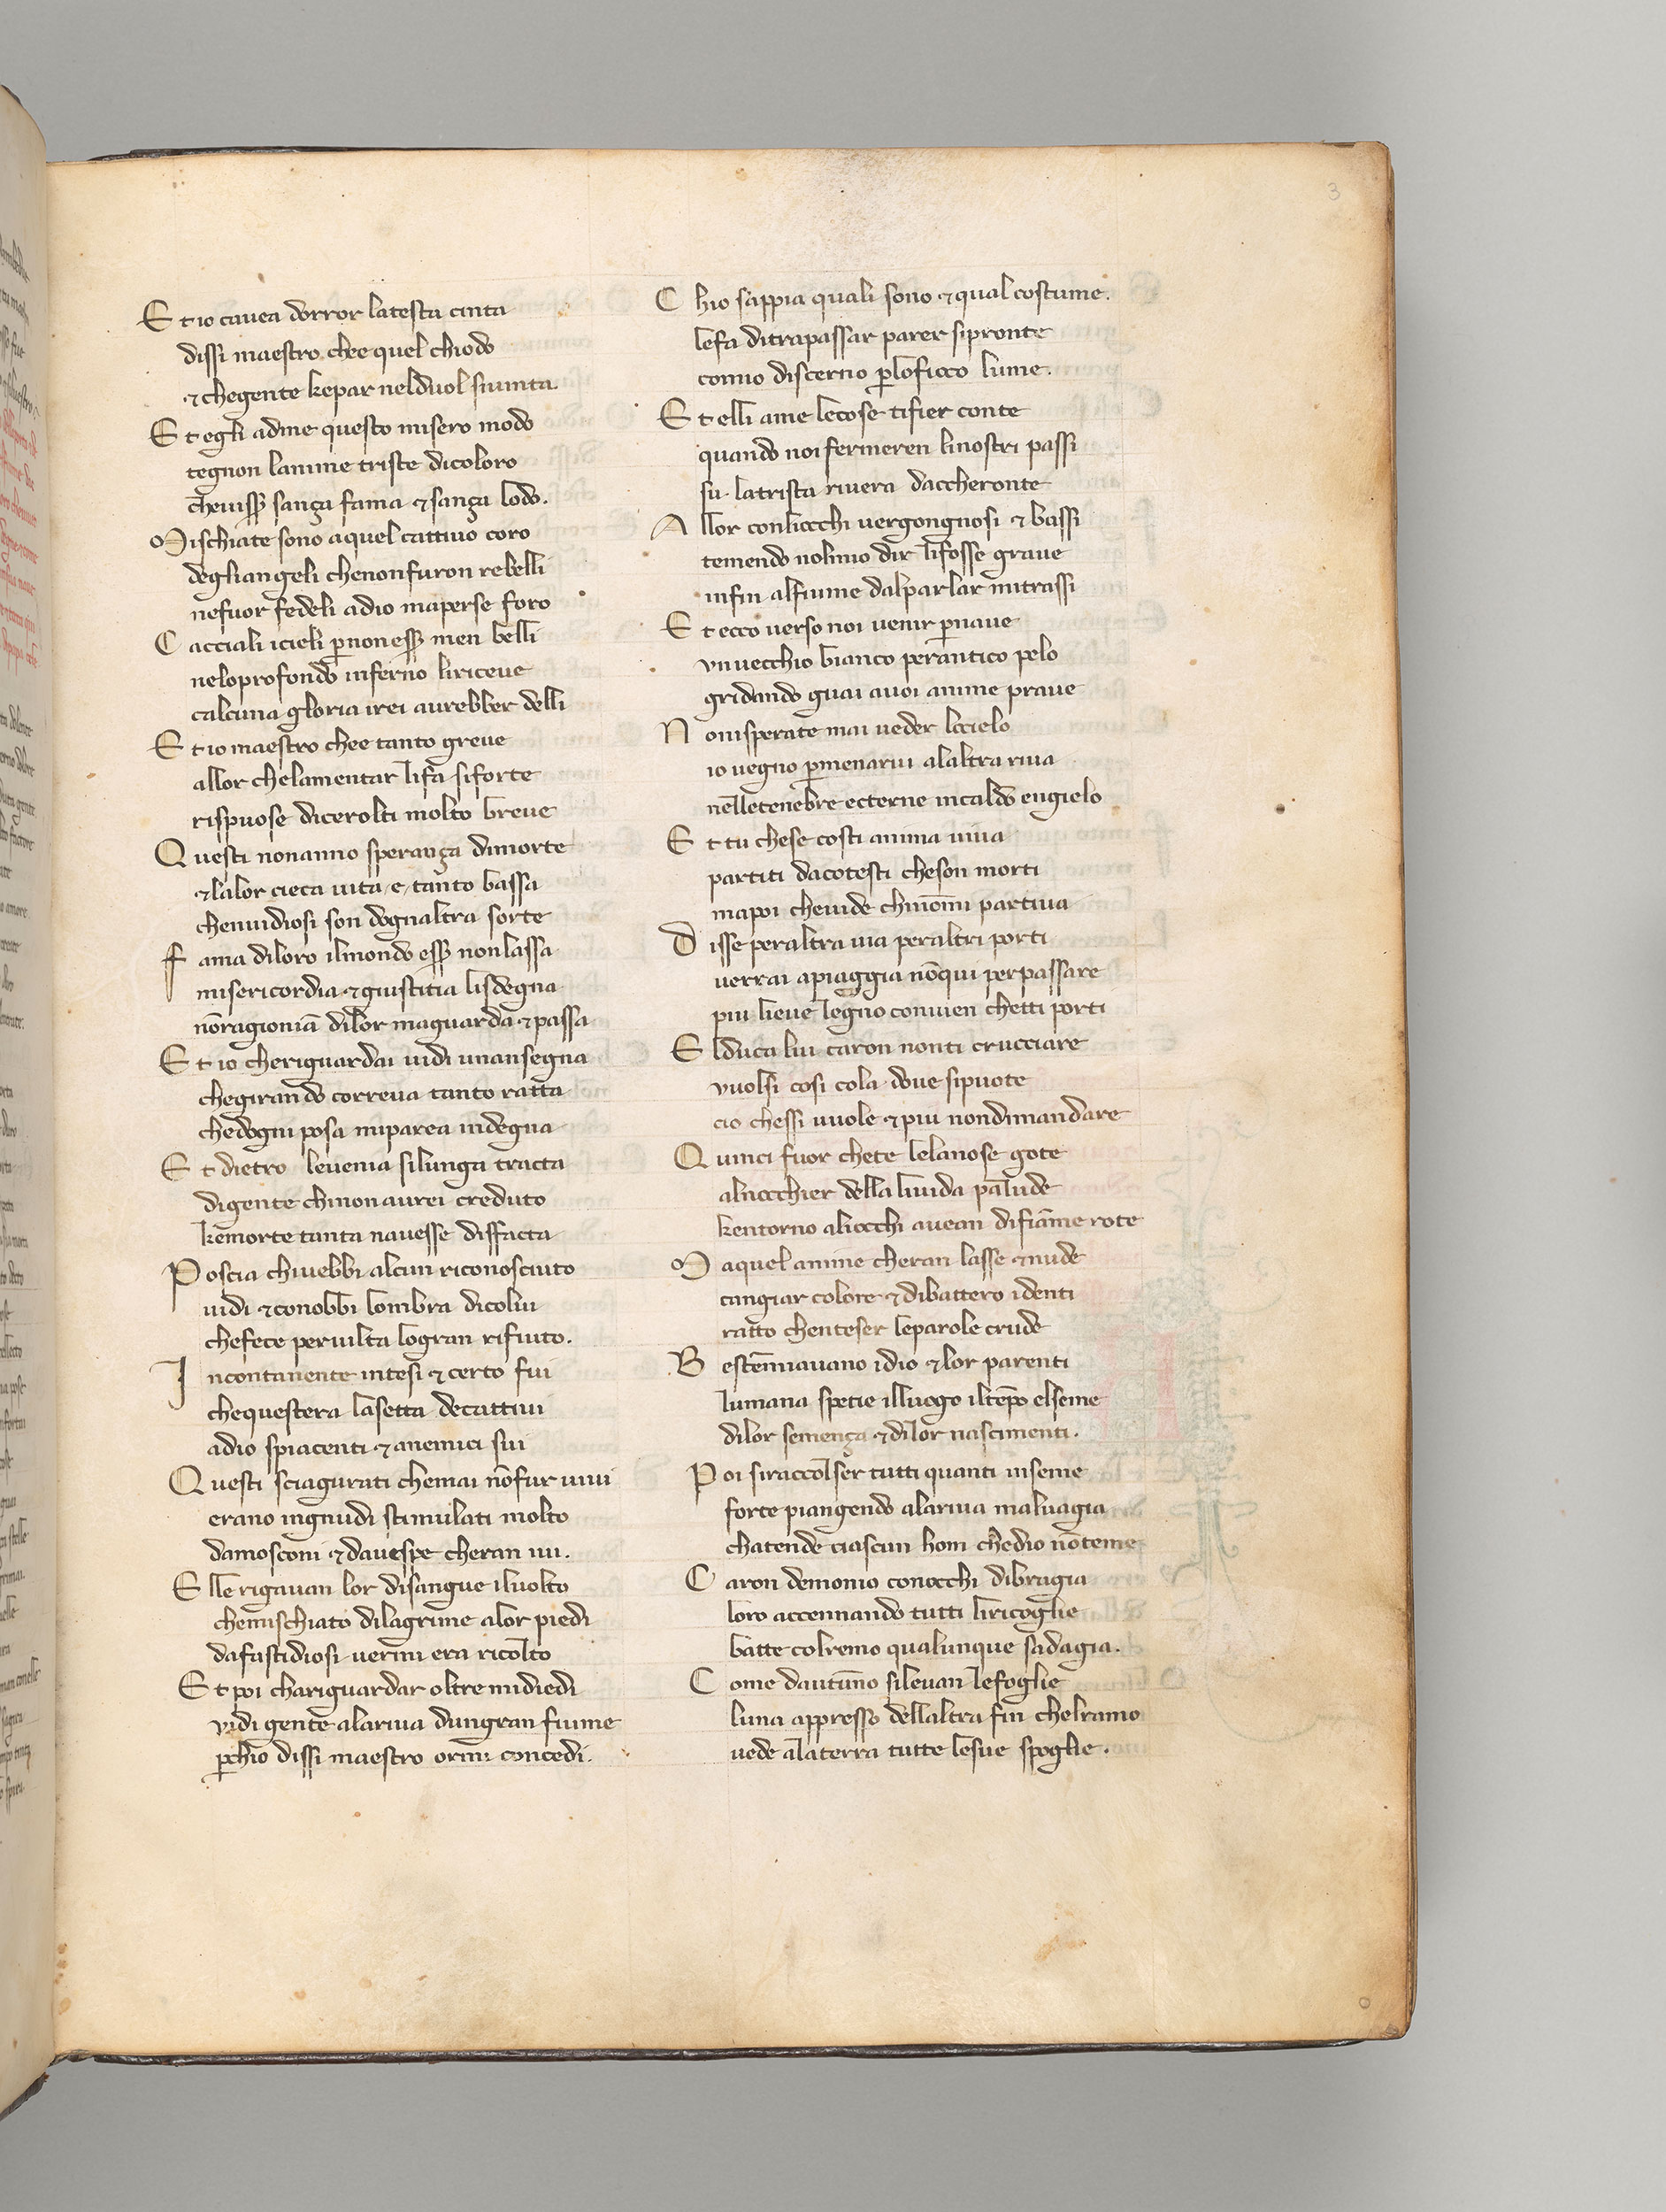 3
Et io cauea dorror latesta cinta
dissi maestro chee quel chiodo
⁊ chegente kepar nelduol siuinta
Et egli adme questo misero modo
tegnon lanime triste dicoloro
cheuisser sanza fama ⁊ sanza lodo.
Mischiate sono aquel cattiuo coro
degliangeli chenonfuron rebelli
nefuor fedeli adio maperse foro
Cacciali icieli pernonesser men belli
neloprofondo inferno liriceue
calcuna gloria irei aurebber delli
Et io maestro chee tanto greue
allor chelamentar lifa siforte
rispuose dicerolti molto breue
Questi nonanno speranza dimorte
⁊ lalor cieca uita e tanto bassa
chenuidiosi son dognaltra sorte
fama diloro ilmondo esser nonlassa
misericordia ⁊ giustitia lisdegna
nōragioniā dilor maguarda ⁊ passa
Et io cheriguardai uidi unansegna
chegirando correua tanto ratta
chedogni posa miparea indegna
Et dietro leuenia silunga tracta
digente chinonaurei creduto
kemorte tanta nauesse disfacta
Poscia chiuebbi alcun riconosciuto
uidi ⁊ conobbi lombra dicolui
chefece peruilta logran rifiuto.
Incontanente intesi ⁊ certo fui
chequestera lasetta decattiui
adio spiacenti ⁊ anemici sui
Questi sciagurati chemai nōfur uiui
erano ingnudi stimulati molto
damosconi ⁊ dauespe cheran iui.
Elle rigauan lor disangue iluolto
chemischiato dilagrime alor piedi
dafastidiosi uermi era ricolto
Et poi chariguardar oltre midiedi
vidi gente alariua dungran fiume
perchio dissi maestro ormi concedi.
Chio sappia quali sono ⁊ qual costume.
lefa ditrapassar parer sipronte
comio discerno perlofioco lume.
Et elli ame lecose tifier conte
quando noi fermeren linostri passi
su latrista riuera daccheronte
Allor conliocchi uergongnosi ⁊ bassi
temendo nolmio dir lifosse graue
infin alfiume dalparlar mitrassi
Et ecco uerso noi uenir pernaue
vnuecchio bianco perantico pelo
gridando guai auoi anime praue
Nonisperate mai ueder locielo
io uegno permenarui alaltra riua
nelletenebre ecterne incaldo engielo
Et tu chese costi anima uiua
partiti dacotesti cheson morti
mapoi cheuide chinōmi partiua
Disse peraltra uia peraltri porti
uerrai apiaggia nōqui perpassare
piu lieue legno conuien chetti porti
Elduca lui caron nonti crucciare
vuolsi cosi cola doue sipuote
cio chessi uuole ⁊ piu nondimandare
Quinci fuor chete lelanose gote
alnocchier della liuida palude
kentorno aliocchi auean difiāme rote
Maquel anime cheran lasse ⁊ nude
cangiar colore ⁊ dibattero identi
ratto chenteser leparole crude
Bestēmiauano idio ⁊ lor parenti
lumana spetie illuogo iltēpo elseme
dilor semenza ⁊ dilor nascimenti.
Poi siraccolser tutti quanti inseme
forte piangendo alariua maluagia
chatende ciascun hom chedio nōteme
Caron demonio conocchi dibragia
loro accennando tutti liricoglie
batte colremo qualunque sadagia.
Come dautūno sileuan lefoglie
luna appresso dellaltra fin chelramo
uede alaterra tutte lesue spoglie.